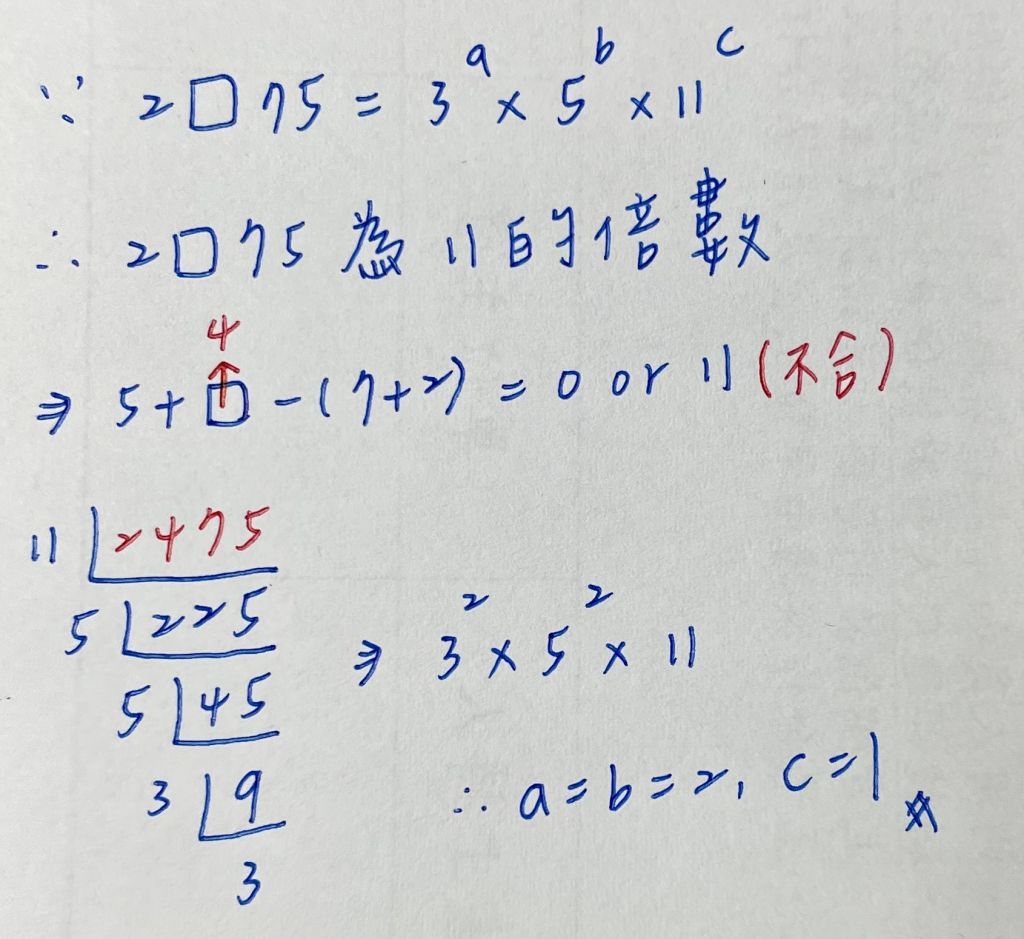 ∵ 2□75 = 3^a × 5^b × 11^c
∴ 2□75 為 11 的倍數
4
⇒ 5 + □ - (7+2) = 0 or 11 (不合)
11 | 2475
5 | 225
5 | 45
3 | 9
3
⇒ 3^2 × 5^2 × 11
∴ a = b = 2, c = 1